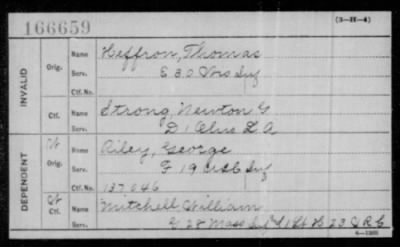 166659 (3-H-4)
INVALID
Orig. Name Heffron, Thomas
Serv. E 30 Inf
Ctf. No.
Ctf. Name Strong, Newton G
Serv. D 1 Ohio L A
DEPENDENT
Orig. Name Riley, George
Serv. F 19 Inf
Ctf. No. 137046
Ctf. Name Mitchell William
Serv. 28 Mass Inf 23 V R C